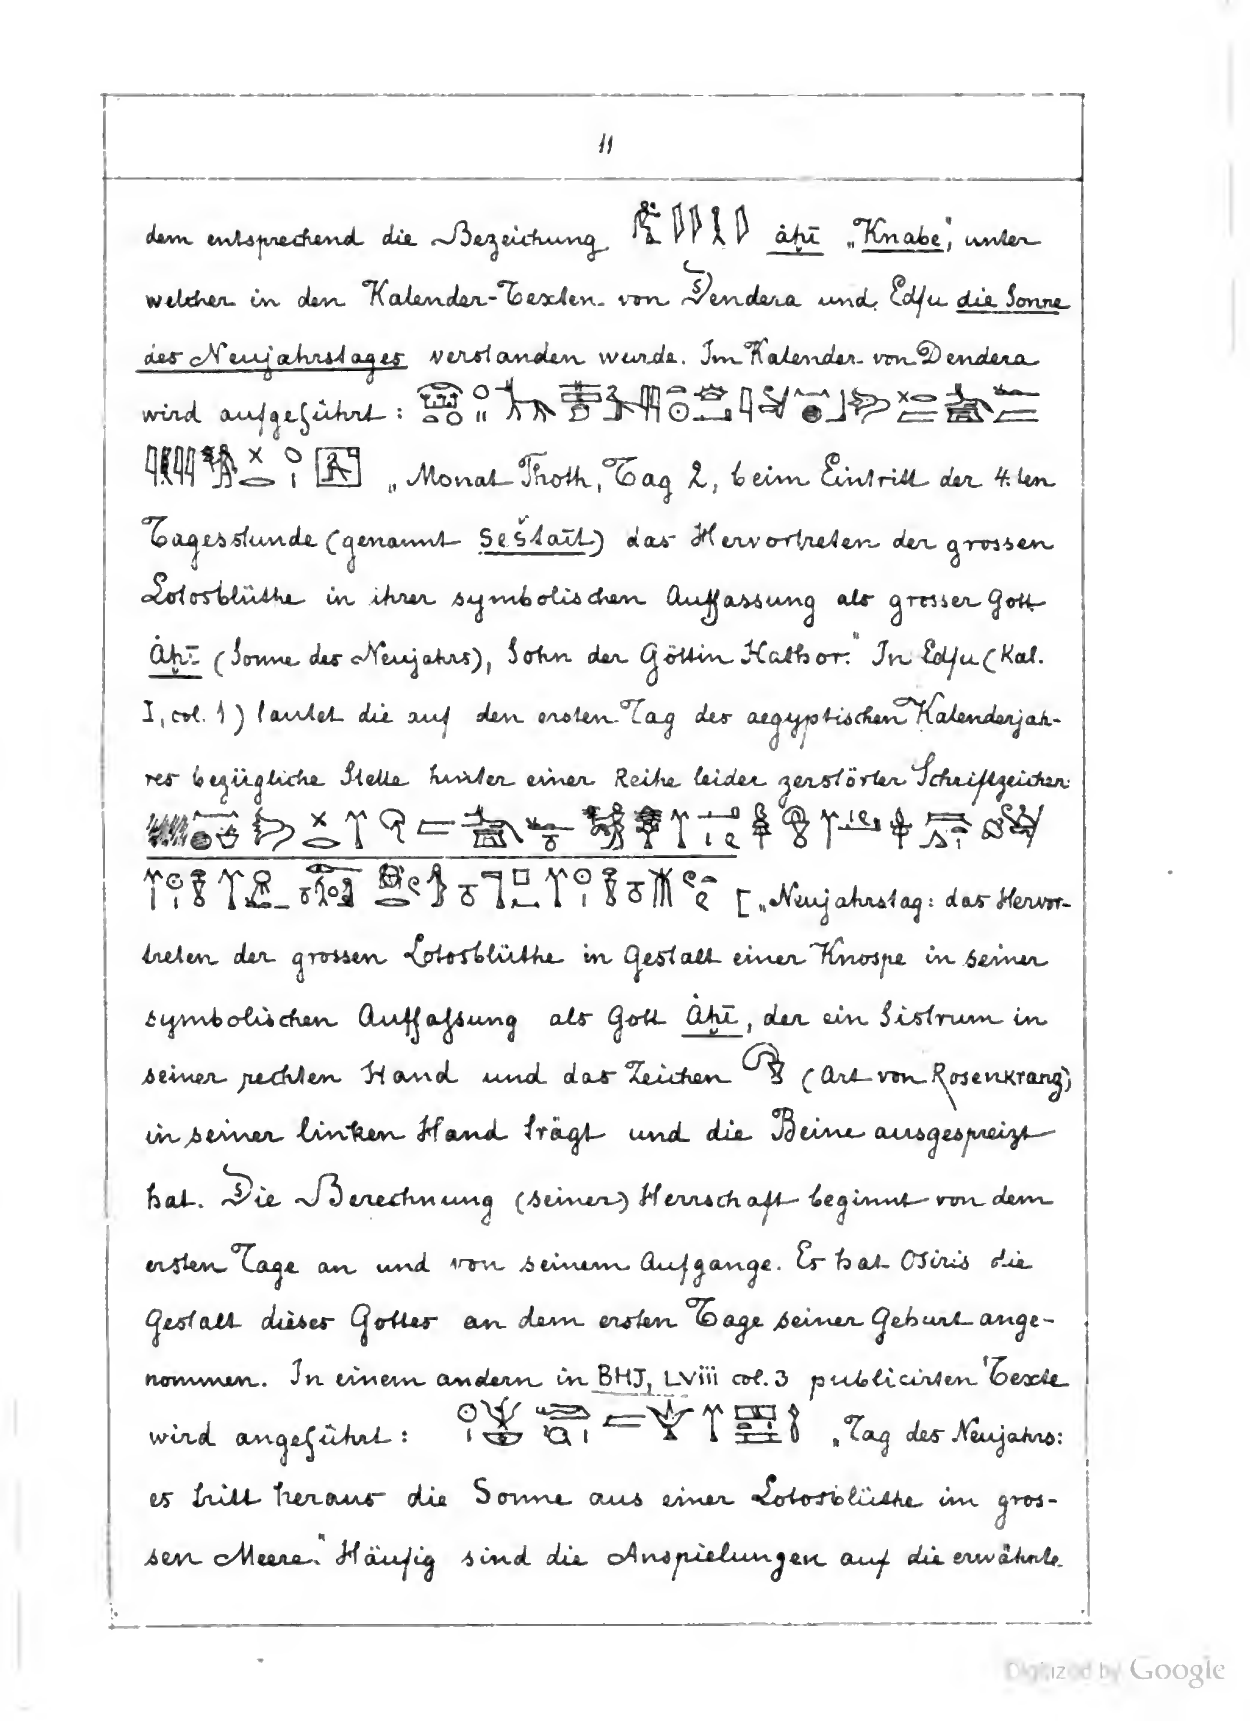 11
dem entsprechend die Bezeichung ȧḥī „Knabe", unter
welcher in den Kalender-Texten von Dendera und Edfu die Sonne
des Neujahrstages verstanden wurde. Im Kalender von Dendera
wird aufgeführt:
„Monat Thoth, Tag 2, beim Eintritt der 4.ten
Tagesstunde (genannt Seštaït) das Hervortreten der grossen
Lotosblüthe in ihrer symbolischen Auffassung als grosser Gott
Ȧḥī (Sonne des Neujahrs), Sohn der Göttin Hathor." In Edfu (Kal.
I, col. 1) lautet die auf den ersten Tag des aegyptischen Kalenderjah-
res bezügliche Stelle hinter einer Reihe leider zerstörter Schriftzeichen:
[„Neujahrstag: das Hervor-
treten der grossen Lotosblüthe in Gestalt einer Knospe in seiner
symbolischen Auffassung als Gott Ȧḥī, der ein Sistrum in
seiner rechten Hand und das Zeichen (Art von Rosenkranz)
in seiner linken Hand trägt und die Beine ausgespreizt
hat. Die Berechnung (seiner) Herrschaft beginnt von dem
ersten Tage an und von seinem Aufgange. Es hat Osiris die
Gestalt dieses Gottes an dem ersten Tage seiner Geburt ange-
nommen. In einem andern in BHJ, LViii col. 3 publicirten Texte
wird angeführt: „Tag des Neujahrs:
es tritt heraus die Sonne aus einer Lotosblüthe im gros-
sen Meere." Häufig sind die Anspielungen auf die erwähnte
Digitized by Google